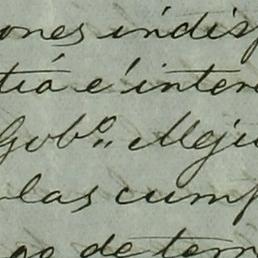 ones indisp
tiá é inter
Gobº. Meji
las cump
go de tom